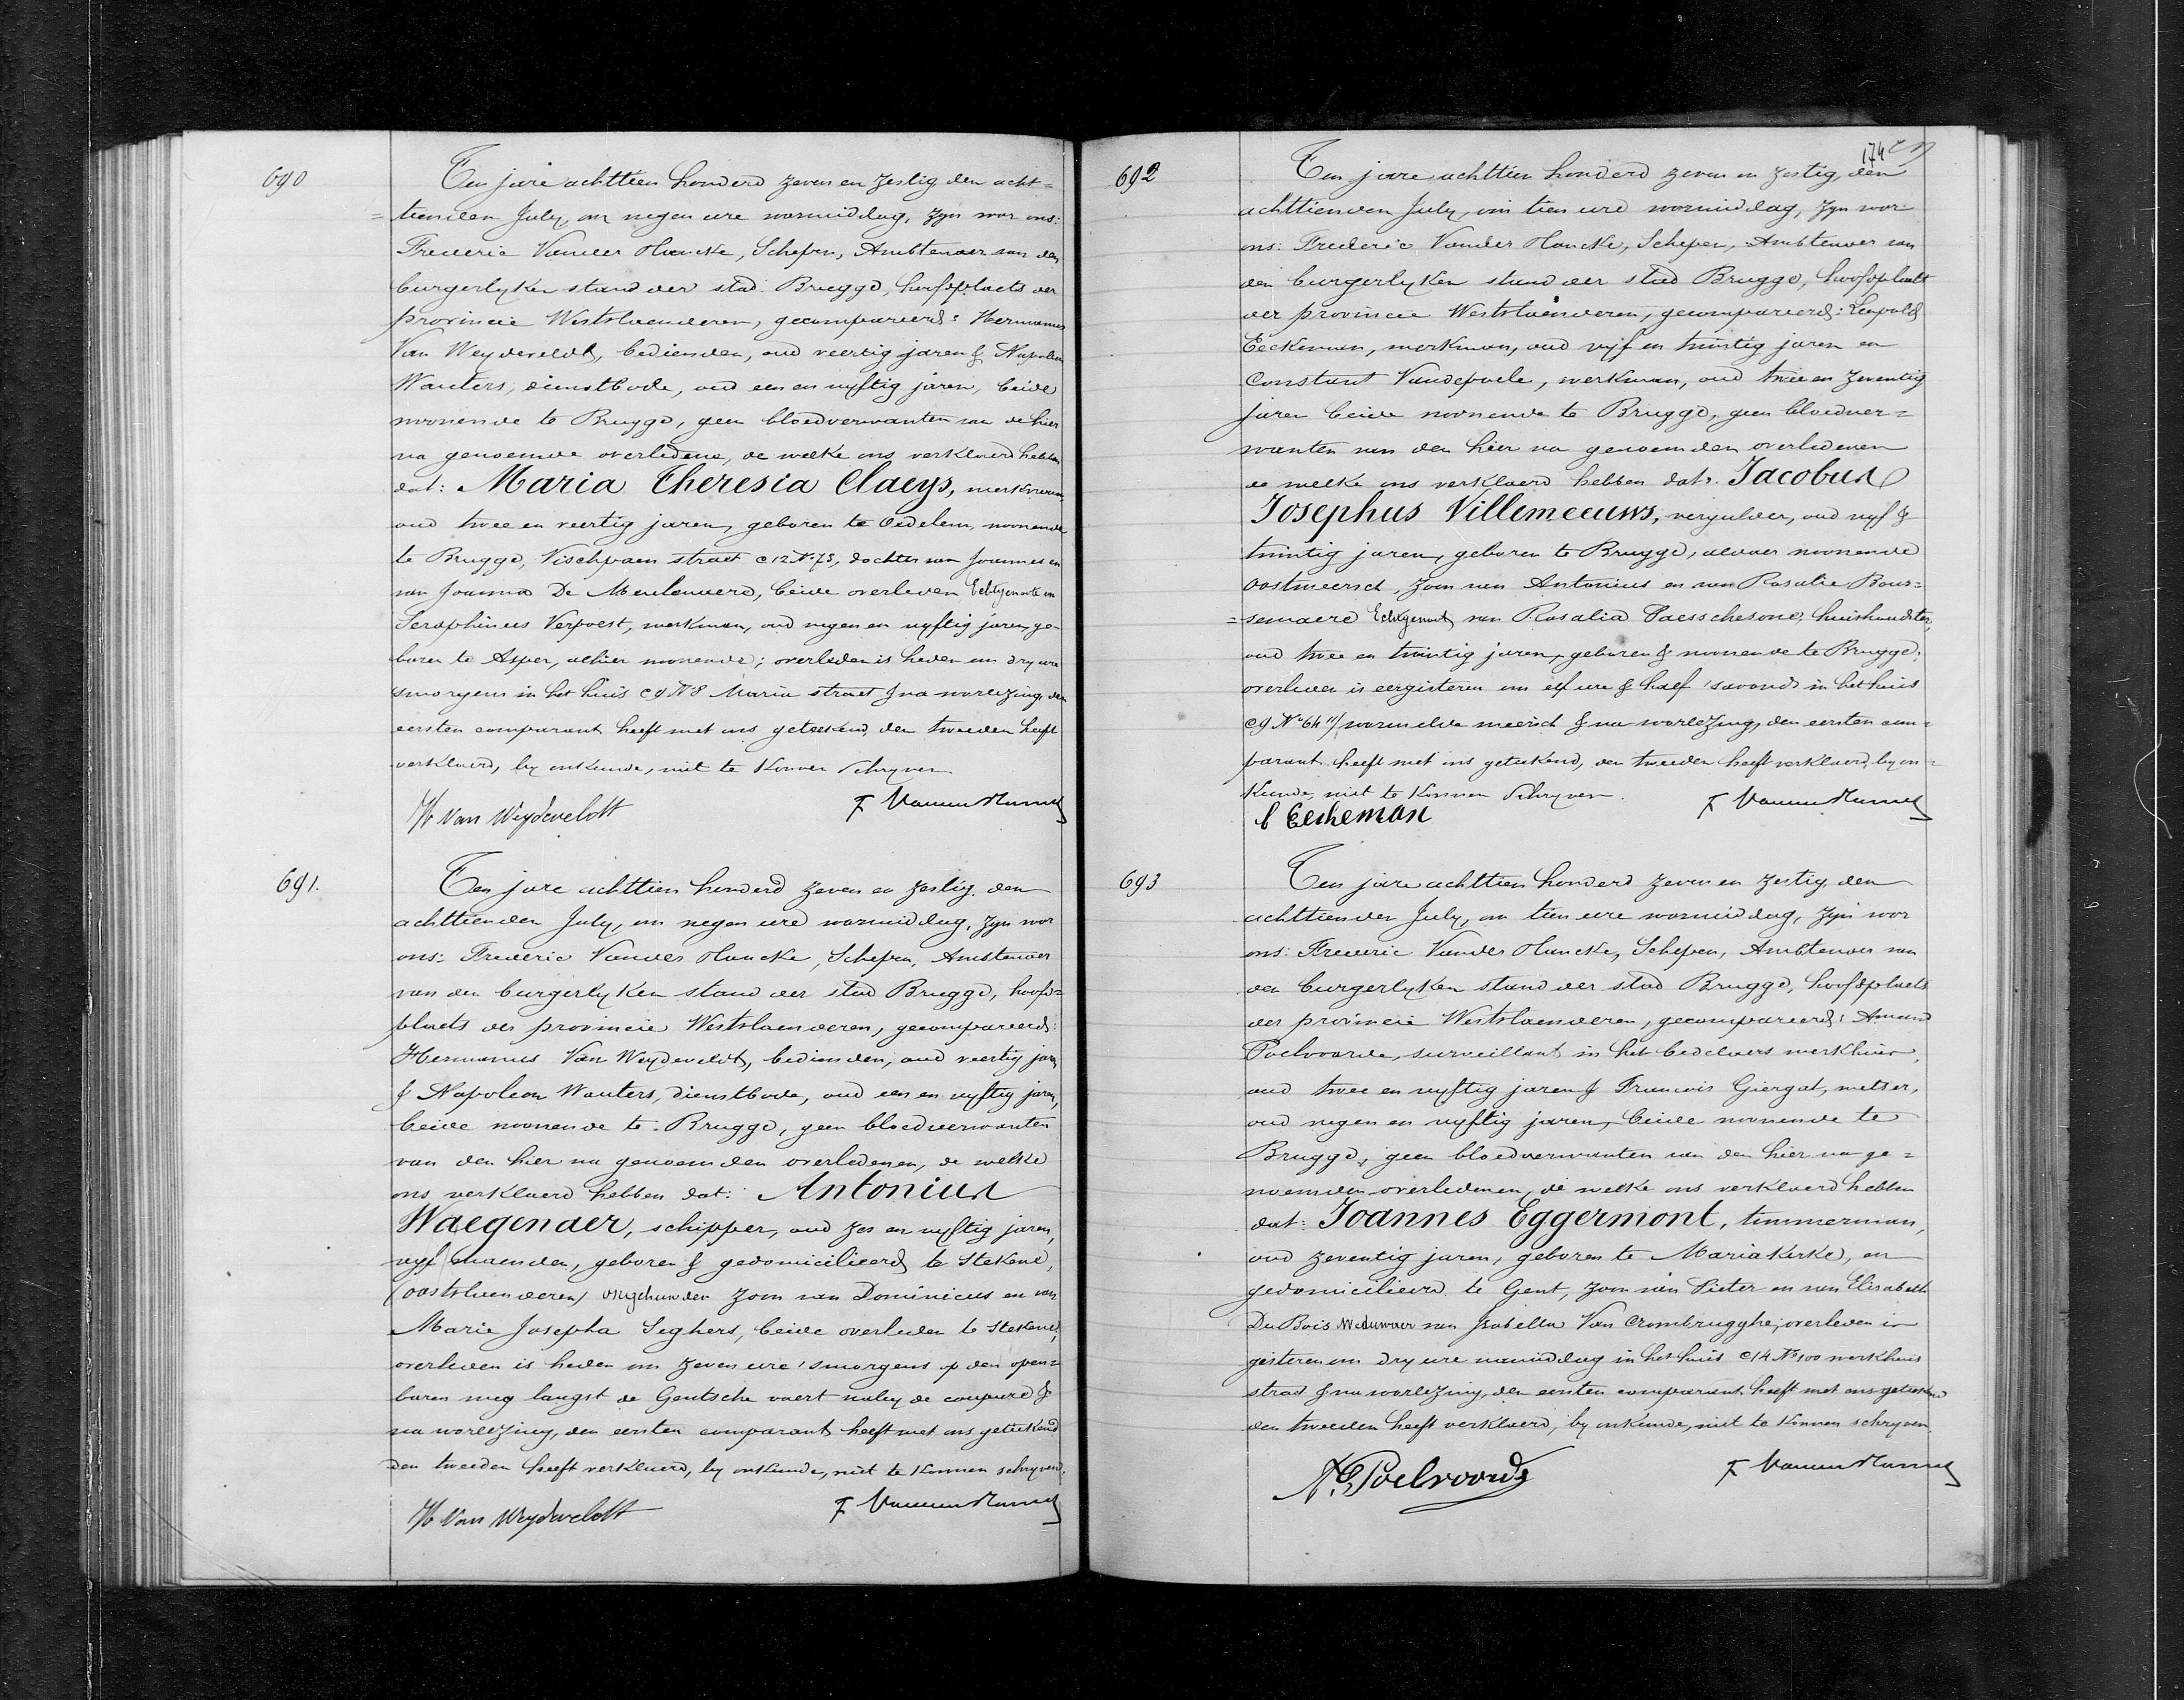 690
Ten jare achttien honderd zeven en zestig den acht=
=tienden July, om negen ure voormiddag, zyn voor ons:
Frederic Vander Hancke, Schepen, Ambtenaer van den
burgerlyken stand der stad Brugge, hoofdplaets der
provincie Westvlaenderen, gecompareerd: Hermanus
Van Weydeveldt, bedienden, oud veertig jaren & Napoleon
Wauters, dienstbode, oud een en vyftig jaren, beide
woonende te Brugge, geen bloedverwanten van de hier
na genoemde overledene, de welke ons verklaerd hebben
dat: Maria Theresia Claeys, werkvrouw,
oud twee en veertig jaren, geboren te Oedelem, woonende
te Brugge, Vischpaen straet C12 No 73, dochter van Joannes en
van Joanna De Meulenaere, beide overleden Echtgenoote van
Seraphinus Verpoest, werkman, oud negen en vyftig jaren, ge-
boren te Asper, alhier woonende; overleden is heden om dry ure
smorgens in het huis C9 N 8 Maria straet & na voorlezing, den
eersten comparant heeft met ons geteekend, den tweeden heeft
verklaerd, by onkunde, niet te konnen schryven
H Van Weydeveldt
691.
Ten jare achttien honderd zeven en zestig, den
achttienden July, om negen ure voormiddag, zyn voor
ons: Frederic Vander Hancke, Schepen, Ambtenaer
van den burgerlyken stand der stad Brugge, hoofd=
plaets der provincie Westvlaenderen, gecompareerd:
Hermanus Van Weydeveldt, bedienden, oud veertig jaren
& Napoleon Wauters, dienstbode, oud een en vyftig jaren,
beide woonende te Brugge, geen bloedverwanten
van den hier na genoemden overledenen, de welke
ons verklaerd hebben dat: Antonius
Waegenaer, schipper, oud zes en vyftig jaren,
vyf maenden, geboren & gedomicilieerd te Stekene,
(Oostvlaenderen) ongehuwden zoon van Dominicus en van
Marie Josepha Seghers, beide overleden te Stekene,
overleden is heden om zeven ure 'smorgens op den open=
baren weg langst de Gentsche vaert naby de coupure &
na voorlezing, den eersten comparant heeft met ons geteekend
den tweeden heeft verklaerd, by onkunde, niet te konnen schryven.
H Van Weydeveldt
174
692
Ten jare achttien honderd zeven en zestig, den
achttienden July, om tien ure voormiddag, zyn voor
ons: Frederic Vander Hancke, Schepen, Ambtenaer van
den burgerlyken stand der stad Brugge, hoofdplaets
der provincie Westvlaenderen, gecompareerd: Leopold
Eeckeman, werkman, oud vyf en twintig jaren en
Constant Vandepoele, werkman, oud twee en zeventig
jaren beide woonende te Brugge, geen bloedver=
wanten van den hier na genoemden overledenen
de welke ons verklaerd hebben dat: Jacobus
Josephus Villemeeuws, vergulder, oud vyf &
twintig jaren, geboren te Brugge, aldaer woonende
Oostmeersch, zoon van Antonius en van Rosalie Bous=
=semaere Echtgenoot van Rosalia Paesschesone, huishoudster,
oud twee en twintig jaren, geboren & woonende te Brugge;
overleden is eergisteren om elf ure & half 'savonds in het huis
C9 No 64 "/ voormelde meersch & na voorlezing, den eersten com=
parant heeft met ons geteekend, den tweeden heeft verklaerd, by on=
kunde, niet te konnen schryven.
693
Ten jare achttien honderd zeven en zestig, den
achttienden July, om tien ure voormiddag, zyn voor
ons: Frederic Vander Hancke, Schepen, Ambtenaer van
den burgerlyken stand der stad Brugge, hoofdplaets
der provincie Westvlaenderen, gecompareerd: Amand
Poelvoorde, surveillant in het bedelaers werkhuis,
oud twee en vyftig jaren & Francois Giergat, metser,
oud negen en vyftig jaren, beide woonende te
Brugge, geen bloedverwanten van den hier na ge=
noemden overledenen, de welke ons verklaerd hebben
dat: Joannes Eggermont, timmerman,
oud zeventig jaren, geboren te Mariakerke, en
gedomicilieerd te Gent, zoon van Pieter en van Elisabeth
Du Bois Weduwaer van Isabella Van Crombrugghe; overleden is
gisteren om dry ure namiddag in het huis C14 No 100 werkhuis
straet & na voorlezing, den eersten comparant heeft met ons geteekend
den tweeden heeft verklaerd, by onkunde, niet te konnen schryven
Poelvoorde